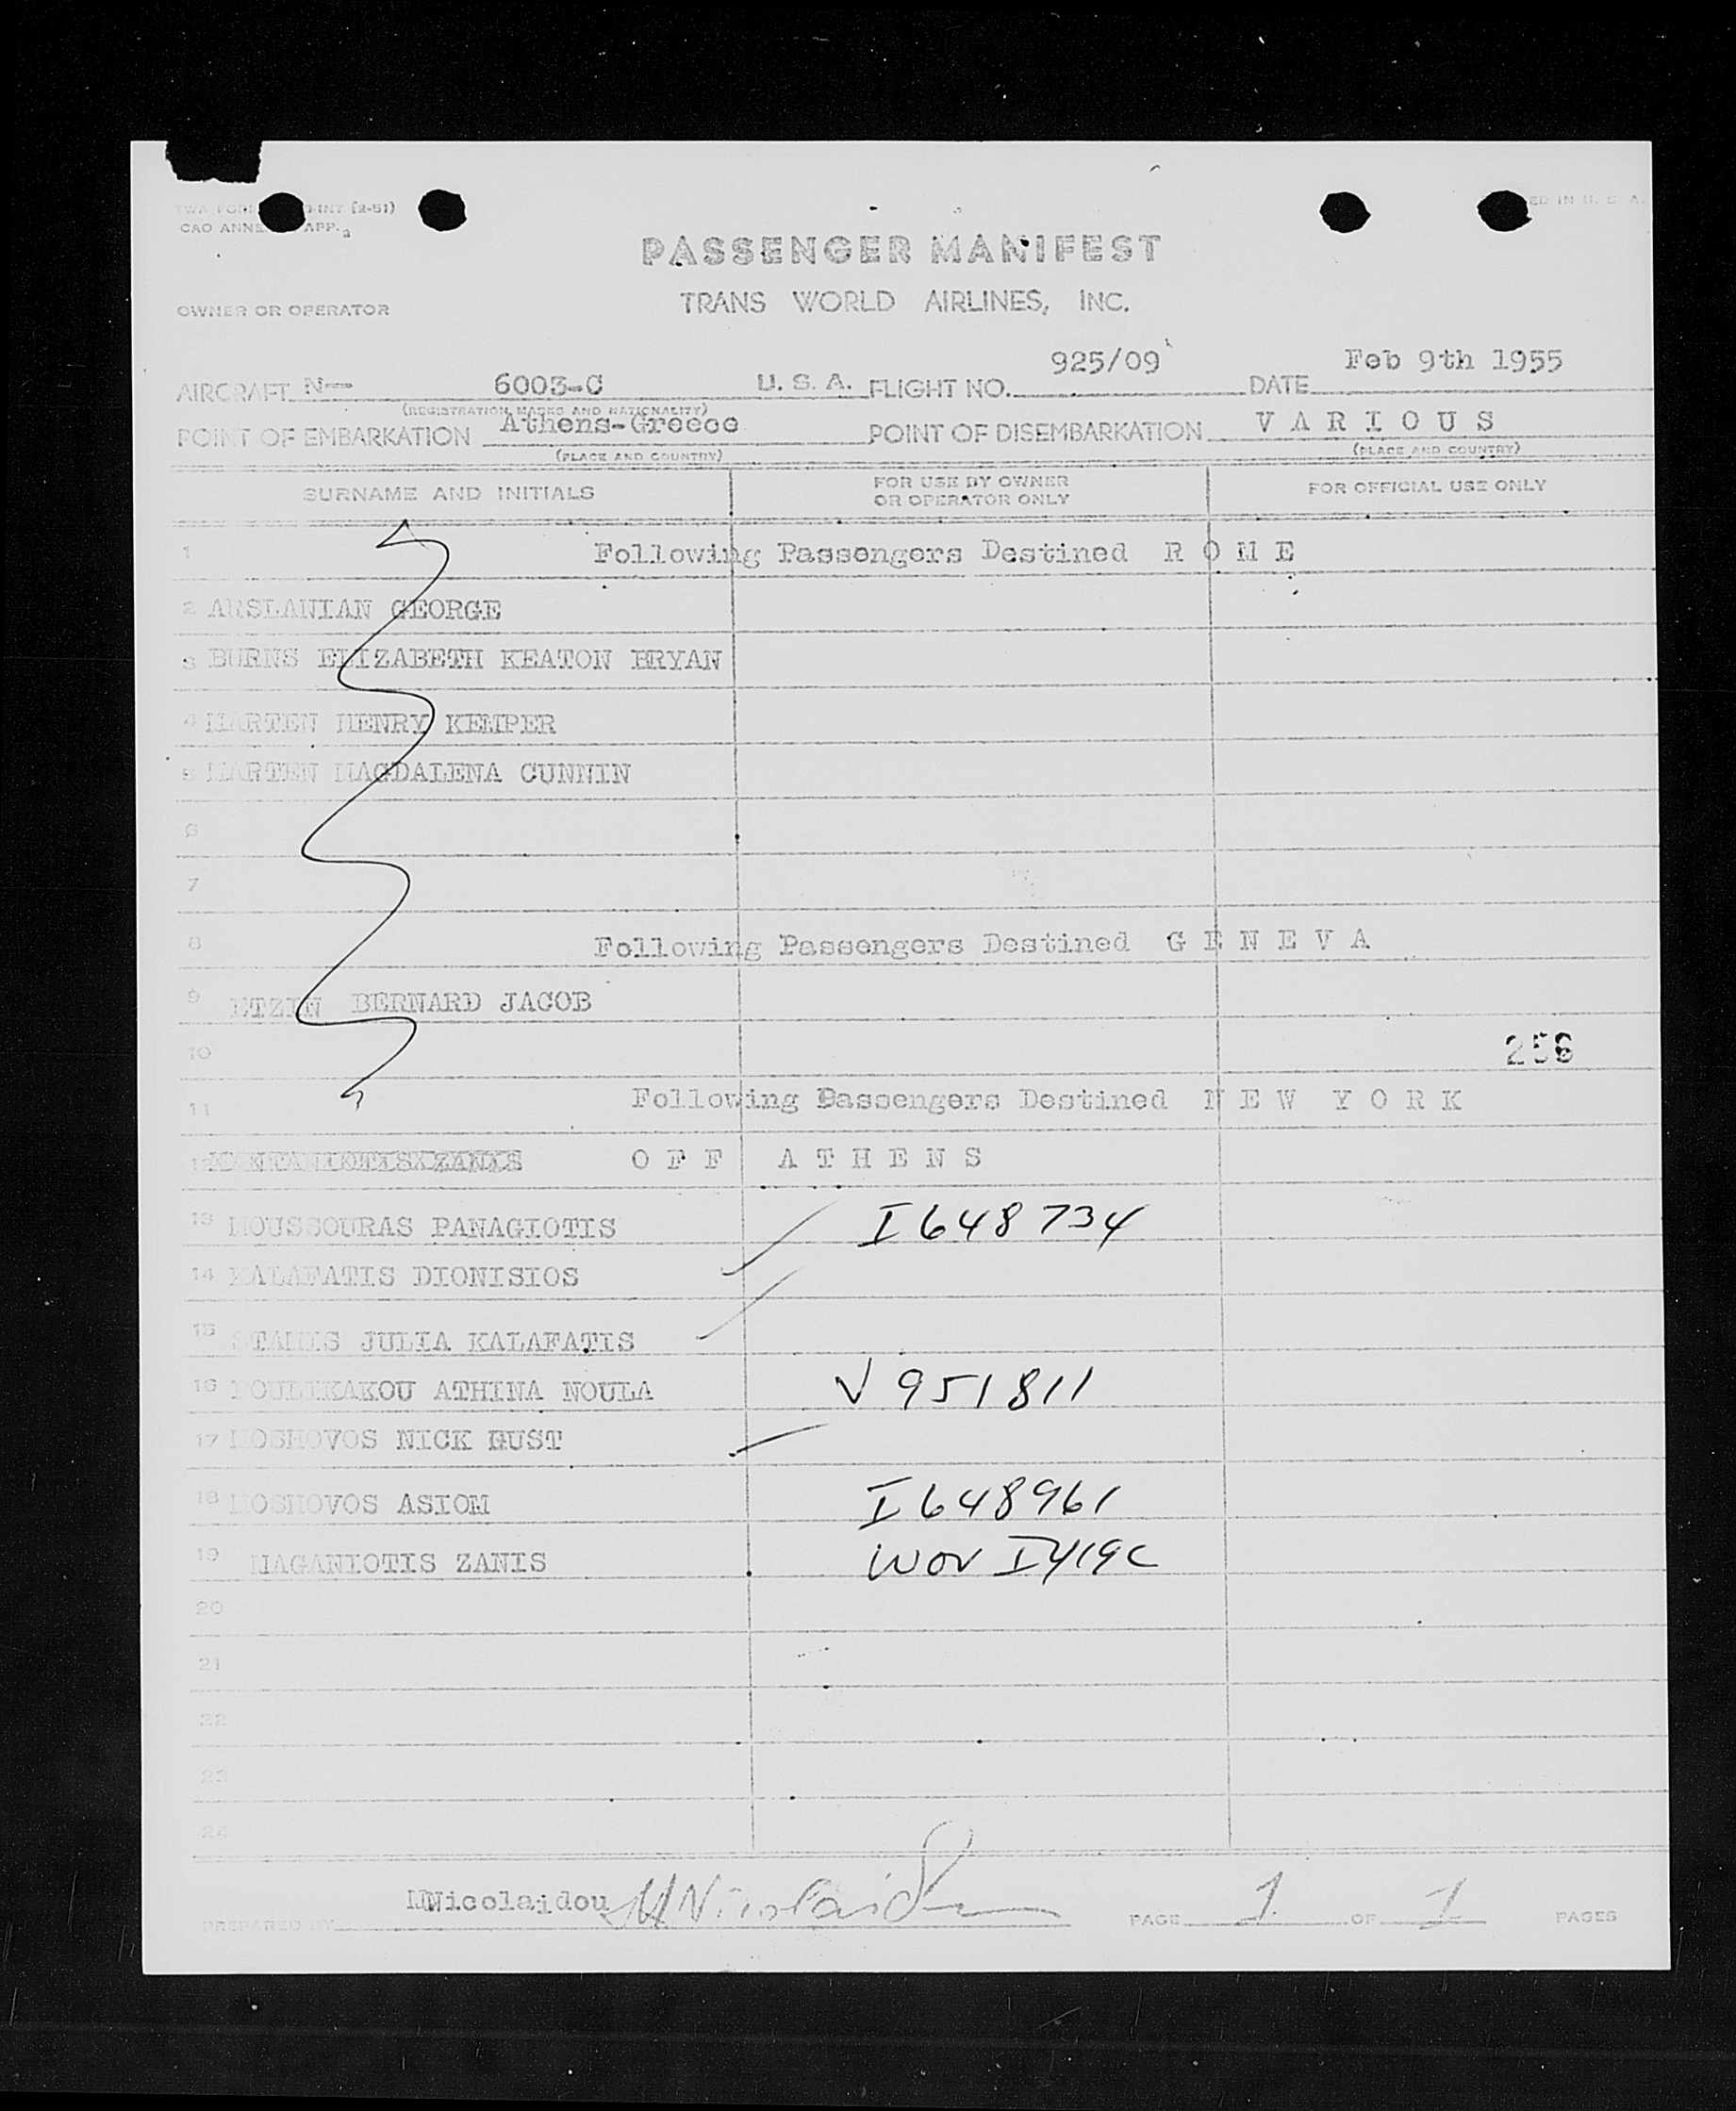 TWA FORM INT (2-51)
CAO ANNE APP. 2
ED IN U. S. A.
PASSENGER MANIFEST
OWNER OR OPERATOR
TRANS WORLD AIRLINES, INC.
AIRCRAFT N-- 6003-C U. S. A. FLIGHT NO. 925/09 DATE Feb 9th 1955
(REGISTRATION MARKS AND NATIONALITY)
POINT OF EMBARKATION Athens-Greece POINT OF DISEMBARKATION V A R I O U S
(PLACE AND COUNTRY) (PLACE AND COUNTRY)
SURNAME AND INITIALS FOR USE BY OWNER OR OPERATOR ONLY FOR OFFICIAL USE ONLY
1 Following Passengers Destined R O M E
2 ARSLANIAN GEORGE
3 BURNS ELIZABETH KEATON BRYAN
4 MARTEN HENRY KEMPER
5 MARTEN MAGDALENA CUNNIN
6
7
8 Following Passengers Destined G E N E V A
9 ETZIN BERNARD JACOB
10 256
11 Following Passengers Destined N E W Y O R K
12 O F F A T H E N S
13 MOUSSOURAS PANAGIOTIS I648734
14 KALAFATIS DIONISIOS
15 STAMIS JULIA KALAFATIS
16 POULIKAKOU ATHINA NOULA V951811
17 MOSHOVOS NICK GUST
18 MOSHOVOS ASIOM I648961
19 MAGANIOTIS ZANIS
20
21
22
23
24
PREPARED BY MNicolaidou MNicolaidou PAGE 1 OF 1 PAGES